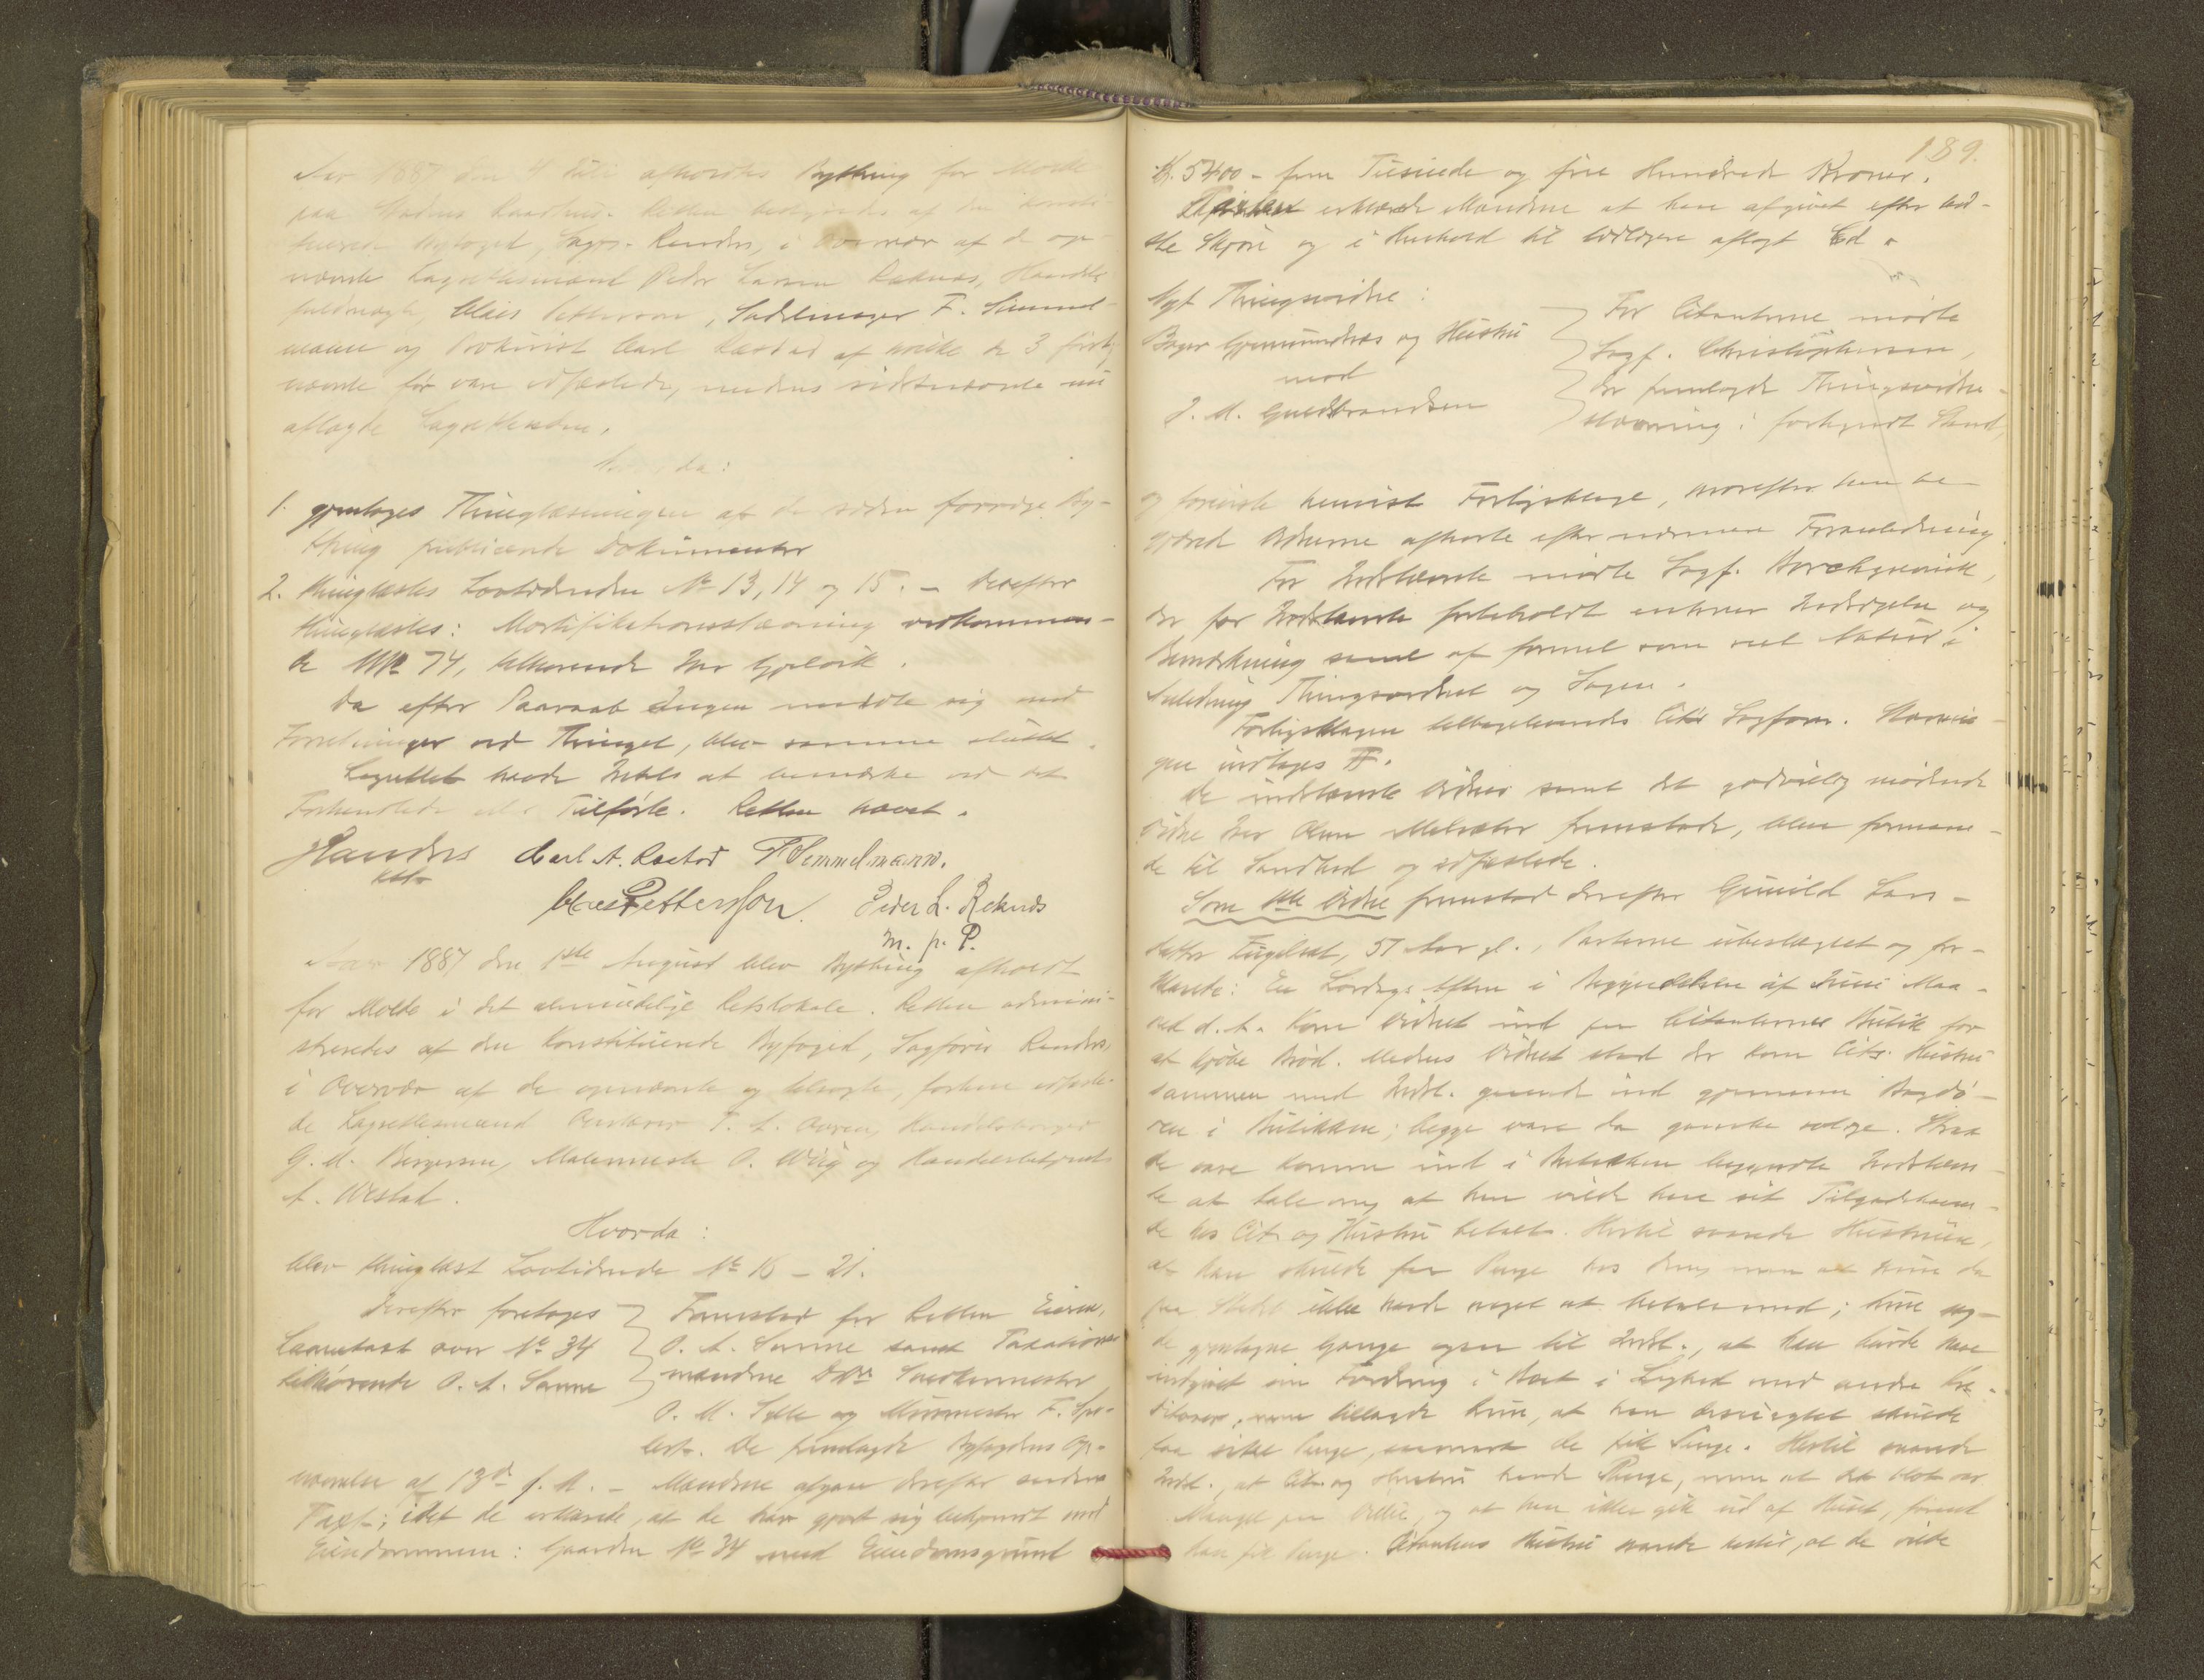 Aar 1887 den 4 Juli afholdtes Bything for Molde
paa Stadens Raadhus. Retten betjentes af den konsti-
tuerede Byfoged, Sagf. Randers, i Overvær af de op-
nævnte Lagrettesmænd Peder Larsen Reknæs, Handels-
fuldmægtig Claus Pettersson, Sadelmager F. Himmel-
mann og Prokurist Carl Rastad af hvilke de 3 først-
nævnte før vare edfæstede, medens sidstnævnte nu
aflagde Lagretteeden.
Hvorda:
1. gjentages Thinglæsningen af de siden forrige By-
thing publicerede Dokumenter
2. thinglæstes Lovtidenden No 13, 14 og 15. – Derefter
thinglæstes: Mortifikationsstævning vedkommen-
de No 74, tilhørende
Da efter Paaraab Ingen meldte sig med
Forretninger ved Thinget, blev samme sluttet.
Lagrettet havde Intet at bemærke ved det
Forhandlede el. Tilførte. Retten hævet.
Randers Carl A. Rastad F Himmelmann.
kst
Claus Pettersson. Peder L. Reknæs
m. p. P.
Aar 1887 den 1ste August blev Bything afholdt
for Molde i det almindelige Retslokale. Retten admini-
streredes af den konstituerede Byfoged, Sagfører Randers,
i Overvær af de opnævnte og tilsagte, forhen edfæste-
de Lagrettesmænd T. A. Handelsborger
G. M. Birgersen, Malermester O. Wiig og Handelsbetjent
A. Westad.
Hvorda:
blev thinglæst Lovtidende No 16 – 21.
Derefter foretoges
Laanetaxt over No 34
tilhørende O. A. Sanne
Fremstod for Retten Eieren,
O. A. Sanne samt Taxations
mændene DHrr Snedkermester
O. M. Sylte og Murmester F.
De fremlagde Byfogdens Op-
nævnelse af 13de f. M. – Mændene afgav derefter
Taxt; idet de erklærede, at de har gjort sig bekjendt med
Eiendommen: Gaarden No 34 med Eiendomsgrund
189.
Kr. 5400 – fem Tusinde og fire Hundrede Kroner.
Taxten erklærede Mændene at have afgivet efter bed-
ste Skjøn og i Henhold til tidligere aflagt Ed.
Nyt Thingsvidne:
Bager Gjermundnes og Hustru
mod
J. M. Guldbrandsen
For Citanterne mødte
Sagf. Christophersen,
der fremlagde Thingsvidne-
stævning i forkyndt Stand,
og foreviste henvist Forligsklage, hvorefter han be-
gjærede Vidnerne afhørte efter nærmere Foranledning.
For Indstævnte mødte Sagf. Borchgrevink,
der for Indstævnte forbeholdt enhver Indsigelse og
Bemærkning saavel af formel som reel Natur i
Anledning Thingsvidnet og Sagen.
Forligsklagen tilbageleveredes Cits Sagfører. Stævnin-
gen indtages #.
De indstævnte Vidner samt det godvillig mødende
Vidne fremstode, bleve formane-
de til Sandhed og edfæstede.
Som 1ste Vidne fremstod derefter Gunild Lars-
datter 51 Aar gl., Parterne ubeslægtet og for-
klarede: En Lørdags Aften i Begyndelsen af Juni Maa-
ned d. A. kom Vidnet ind paa Citanternes Butik for
at kjøbe Brød. Medens Vidnet stod der kom Cits Hustru
sammen med Indst. gaaende ind gjennem Bagdø-
ren i Butikken; begge vare da ganske rolige. Straks
de vare komne ind i Butikken begyndte Indstævn-
te at tale om, at han vilde have sit Tilgodehaven-
de hos Cit. og Hustru betalt. Hertil svarede Hustruen,
at han skulde faa Penge hos dem men at hun da
paa Stedet ikke havde noget at betale med; hun sag-
de gjentagne Gange ogsaa til Indst., at han burde have
indgivet sin Fordring i Boet i Lighed med andre Kre-
ditorer, men tillagde hun, at han desuagtet skulde
faa sine Penge, saasnart de fik Penge. Hertil svarede
Indst., at Cit. og Hustru havde Penge, men at det blot var
Mangel paa Villie, og at han ikke gik ud af Huset, førend
han fik Penge. Citantens Hustru svarede hertil, at de vilde